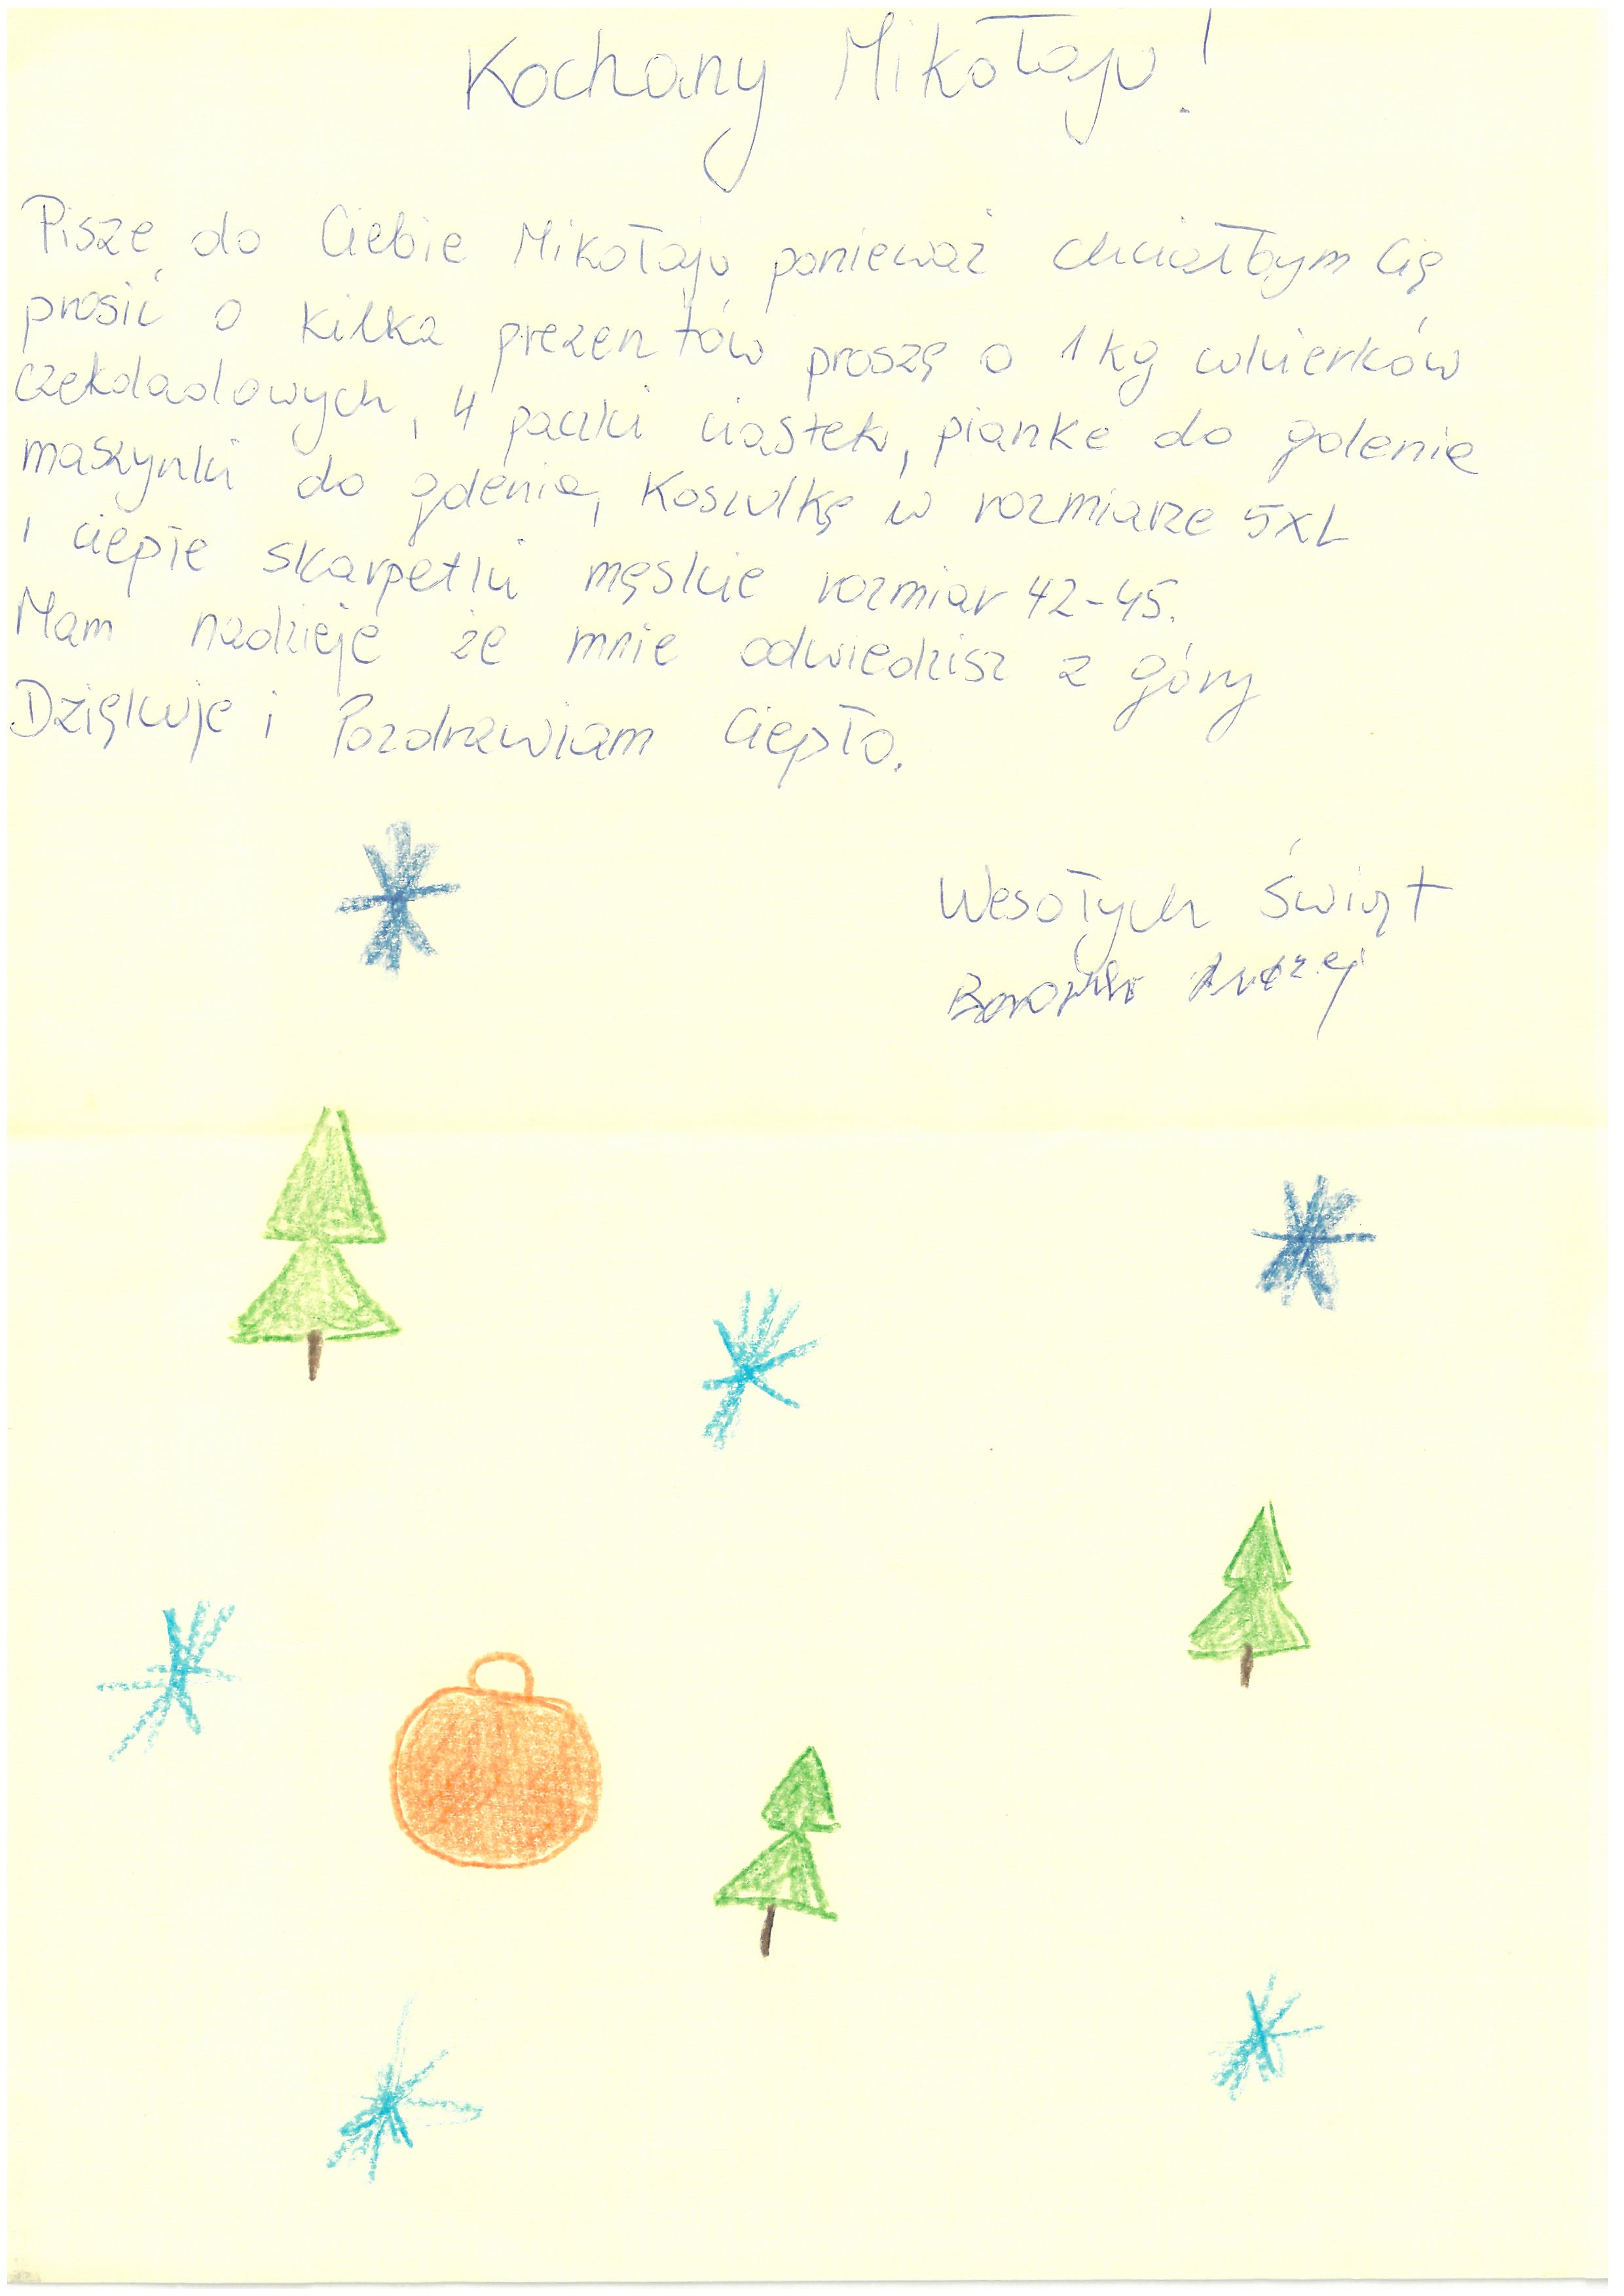 Kochany Mikołaju!
Pisze do Ciebie Mikołaju ponieważ chciałbym Cię
prosić o kilka prezentów proszę o 1 kg cukierków
czekoladowych, 4 paczki ciastek, pianke do golenie
maszynki do golenia, Koszulkę w rozmiarze 5XL
i ciepłe skarpetki męskie rozmiar 42-45.
Mam nadzieje że mnie odwiedzisz z góry
Dziękuje i Pozdrawiam Ciepło.
Wesołych Świąt
Andrzej